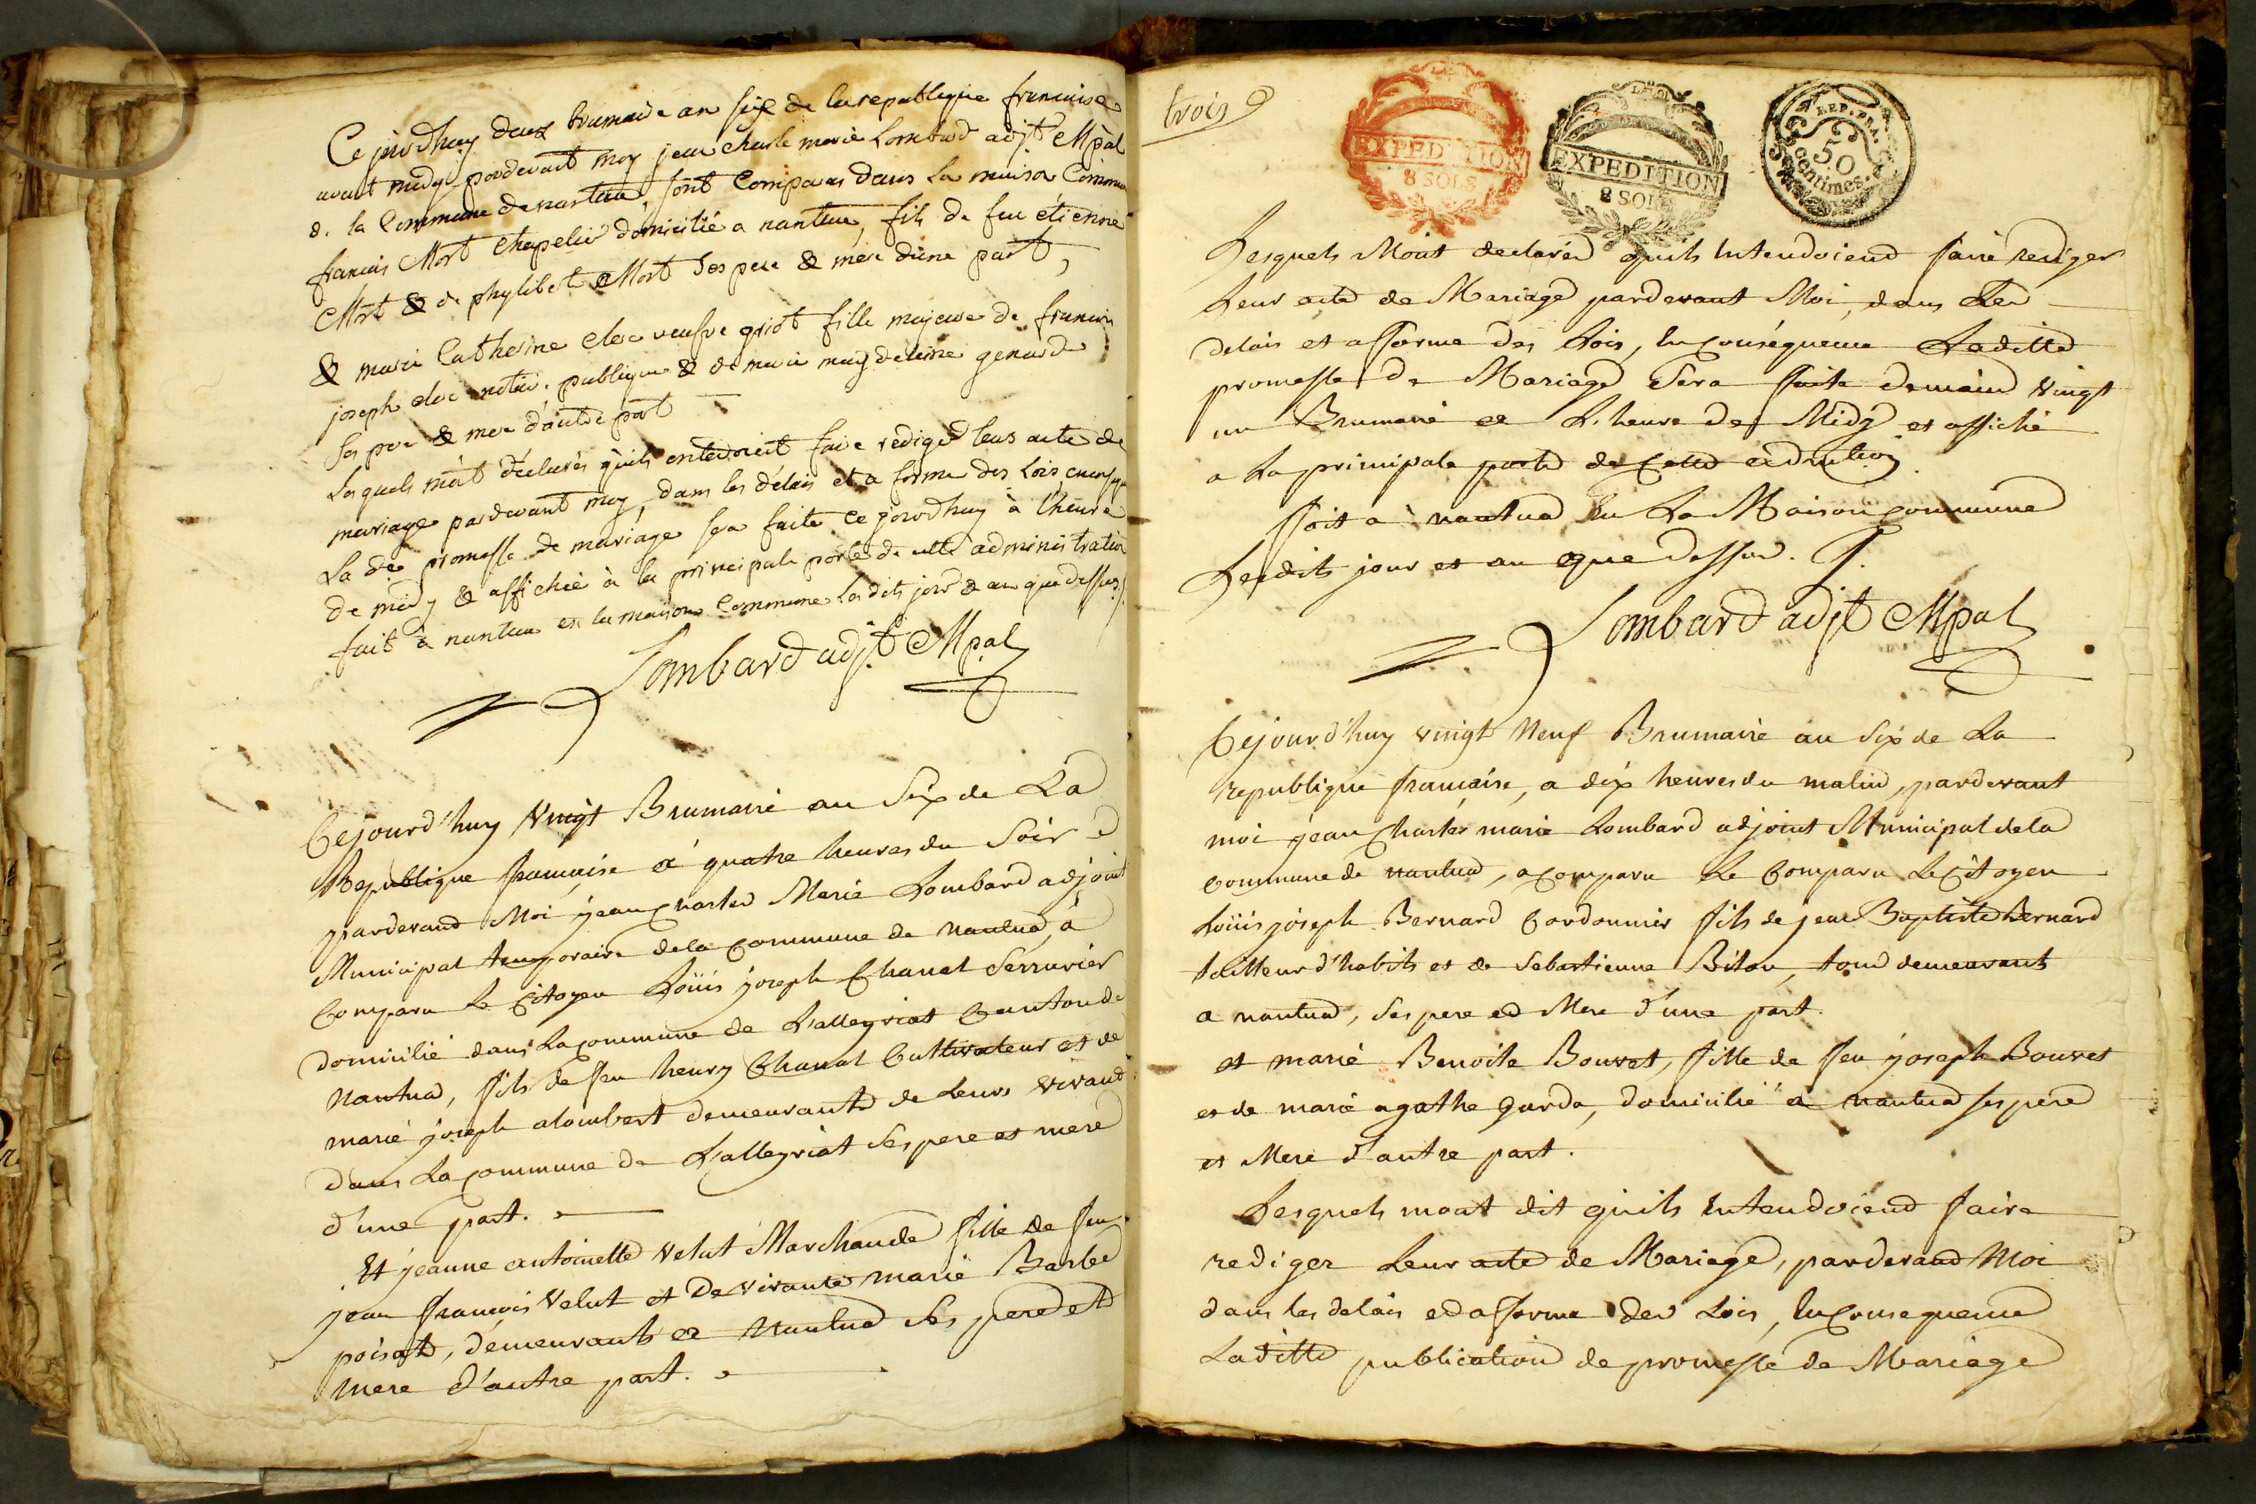 Ce jourdhuy deux brumaire an six de la republique francaise
avant midy pardevant moy jean charle marie Lombard adjt Mpal
d. la Commune de nantua, sont Comparus dans la maison Commu
francois Mort chapelier domicilié a nantua, fils de feu étienne
Mort & de phylibete Mort ses pere & mere d'une part,
& marie Catherine cloc veufve griot fille majeure de francois
joseph cloc notaire publique & de marie magdeleine genard
ses pere & mere d'autre part
Lesquels m'ont déclarés qu'ils entendoient faire rédiger leur acte de
mariage pardevant moy, dans les délais et a forme des Lois, en conseq
La de promesse de mariage sera faite ce jourdhuy à l'heure
de midy & affichée à la principale porte de cette administration
fait à nantua en la maison Commune Les dits jour & an que dessus
Lombard adjt Mpal
Cejourd'huy Vingt Brumaire an Six de La
Republique francaise a quatre heures du Soir
pardevant Moi jean Charles Marie Lombard adjoint
Municipal temporaire de la Commune de Nantua, à
Comparu Le Citoyen Loüis joseph Chanal Serrurier
domicilié dans La Commune de Lalleyriat Canton de
Nantua, fils de feu henry Chanal Cultivateur et de
marie joseph alombert demeurants de Leurs vivand
dans La Commune de Lalleyriat Ses pere et mere
d'une part.
Et jeanne antoinette Velut Marchande fille de feu
jean francois Velut et De vivante marie Barbe
poisat, demeurants a Nantua Ses pere et
mere d'autre part.
trois
EXPEDITION
8 SOLS
EXPEDITION
8 SOLS
REP. FRA.
50
Centimes.
Lesquels Mont declaréd quils Intendoiend faire rediger
Leur acte de Mariage pardevant Moi, dans Les
delais et a forme des Lois, En Conséquence Laditte
promesse de Mariage Sera faite demain vingt
un Brumaire a L'heure de Midy et affiché
a La principale porte de Cette administration
fait a nantua En La Maison Commune
Lesdits jour et an que dessus.
Lombard adjt Mpal
Cejourd'huy vingt Neuf Brumaire an Six de La
republique francaise, a dix heures du matin, pardevant
moi jean Charles marie Lombard adjoint Municipal de la
Commune de nantua, a Comparu Le Comparu Le Citoyen
Loüis joseph Bernard Cordonnier fils de jean Baptiste Bernard
tailleur d'habits et de Sebastienne Biton, tous demeurants
a nantua, Ses pere et Mere d'une part.
et marie Benoite Bouvet, fille de feu joseph Bouvet
et de marie agathe garda, domicilié a nantua ses pere
et Mere d'autre part.
Lesquels mont dit quils Entendoiend faire
rediger Leur acte de Mariage, pardevand Moi
dans les delais et a forme des Lois, En Consequence
Laditte publication de promesse de Mariage